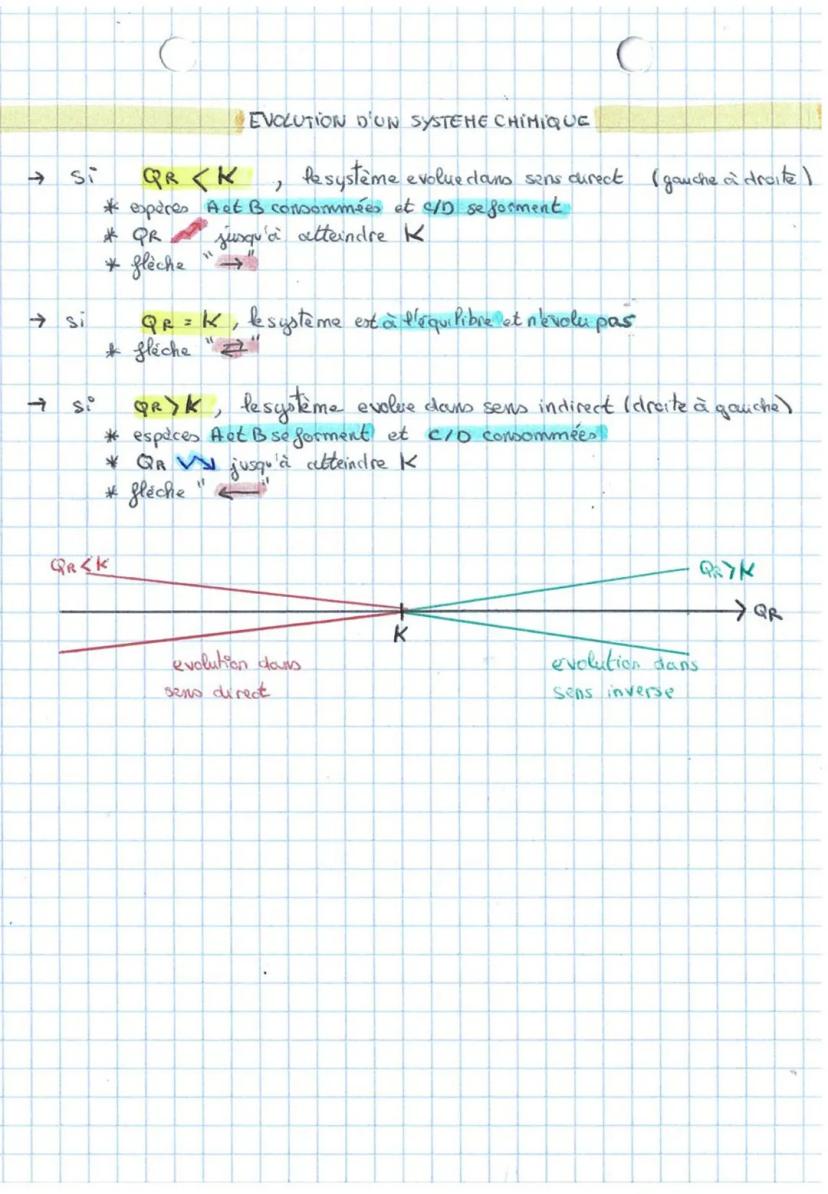 EVOLUTION D'UN SYSTEME CHIMIQUE
→ Si QR < K , le système evolue dans sens direct (gauche à droite)
* espèces A et B consommées et C/D se forment
* QR ↗ jusqu'à atteindre K
* flèche "→"
→ Si QR = K , le système est à l'équilibre et n'évolu pas
* flèche "⇄"
→ Si QR > K , le système evolue dans sens indirect (droite à gauche)
* espèces A et B se forment et C/D consommées
* QR ↘ jusqu'à atteindre K
* flèche "←"
QR < K
QR > K
QR
K
evolution dans
sens direct
evolution dans
sens inverse